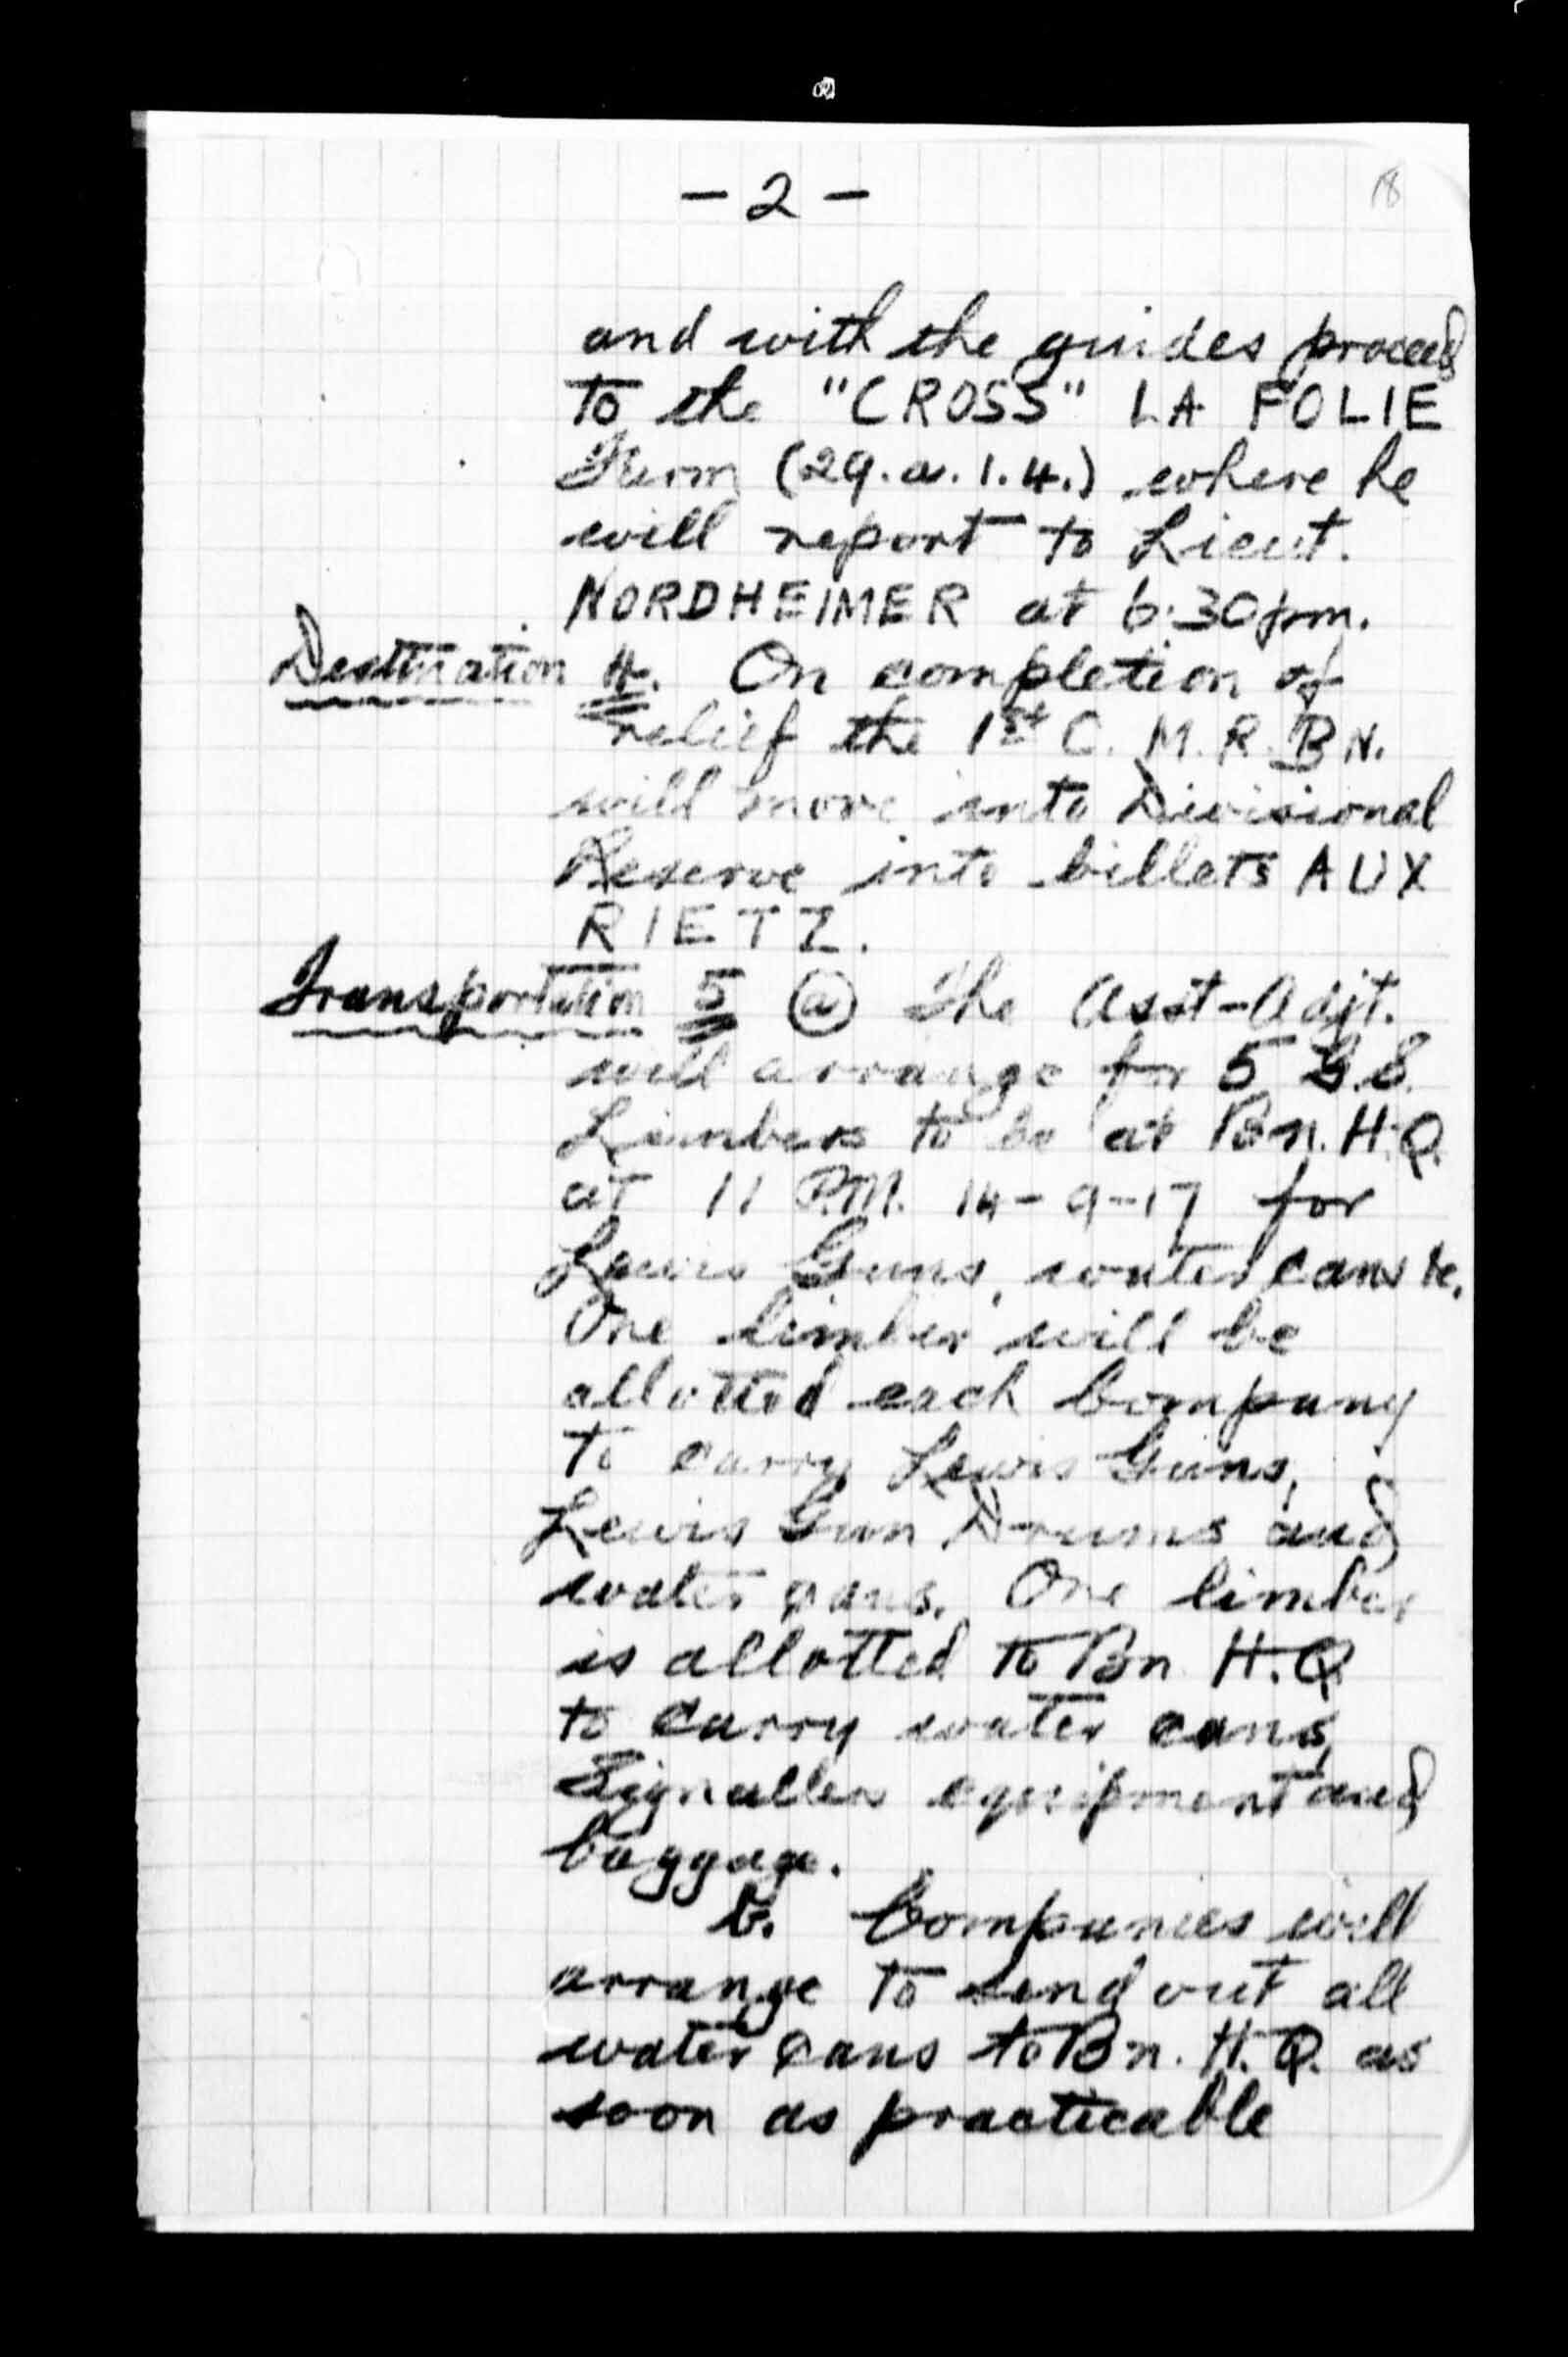 - 2 -
18
and with the guides proceed
to the "CROSS" LA FOLIE
Farm (29.a.1.4.) where he
will report to Lieut.
NORDHEIMER at 6:30pm.
Destination 4. On completion of
relief the 1st C. M. R. BN.
will move into Divisional
Reserve into billets AUX
RIETZ.
Transportation 5 (a) The Asst-Adjt.
will arrange for 5 G.S.
Limbers to be at Bn. H.Q.
at 11 P.M. 14-9-17 for
Lewis Guns, water cans &c.
One limber will be
allotted each Company
to carry Lewis Guns,
Lewis Gun Drums and
water cans. One limber
is allotted to Bn H.Q
to carry water cans,
Signallers equipment and
baggage.
b. Companies will
arrange to send out all
water cans to Bn. H.Q. as
soon as practicable